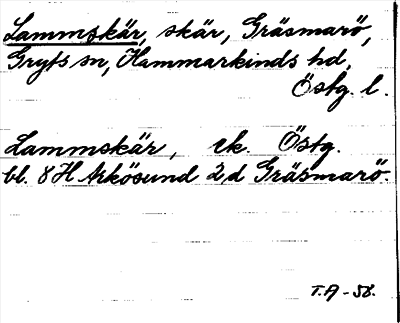 Lammskär, skär, Gräsmarö,
Gryts sn, Hammarkinds hd,
Östg. l.
Lammskär, ek. Östg.
bl. 8 H Arkösund 2 d Gräsmarö.
T.A -58.